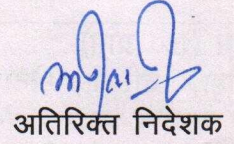 अतिरिक्त निदेशक